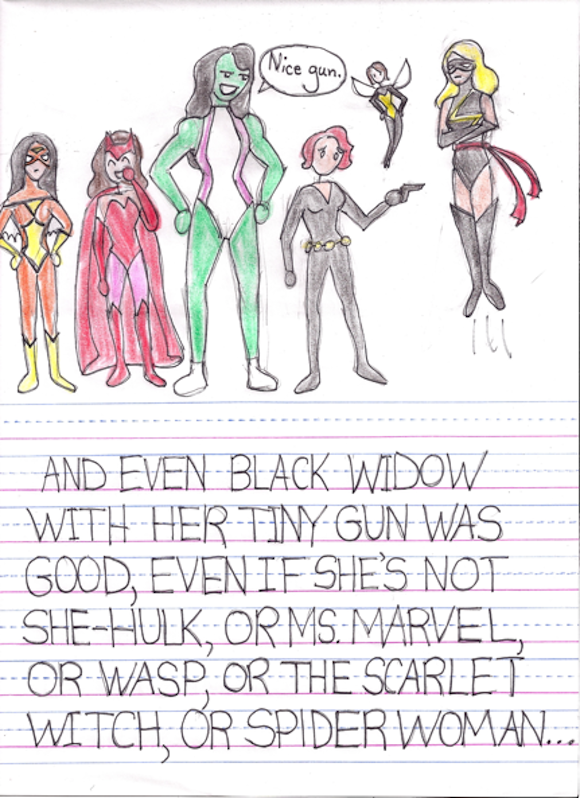 Nice gun.
AND EVEN BLACK WIDOW
WITH HER TINY GUN WAS
GOOD, EVEN IF SHE'S NOT
SHE-HULK, OR MS. MARVEL,
OR WASP, OR THE SCARLET
WITCH, OR SPIDER WOMAN...